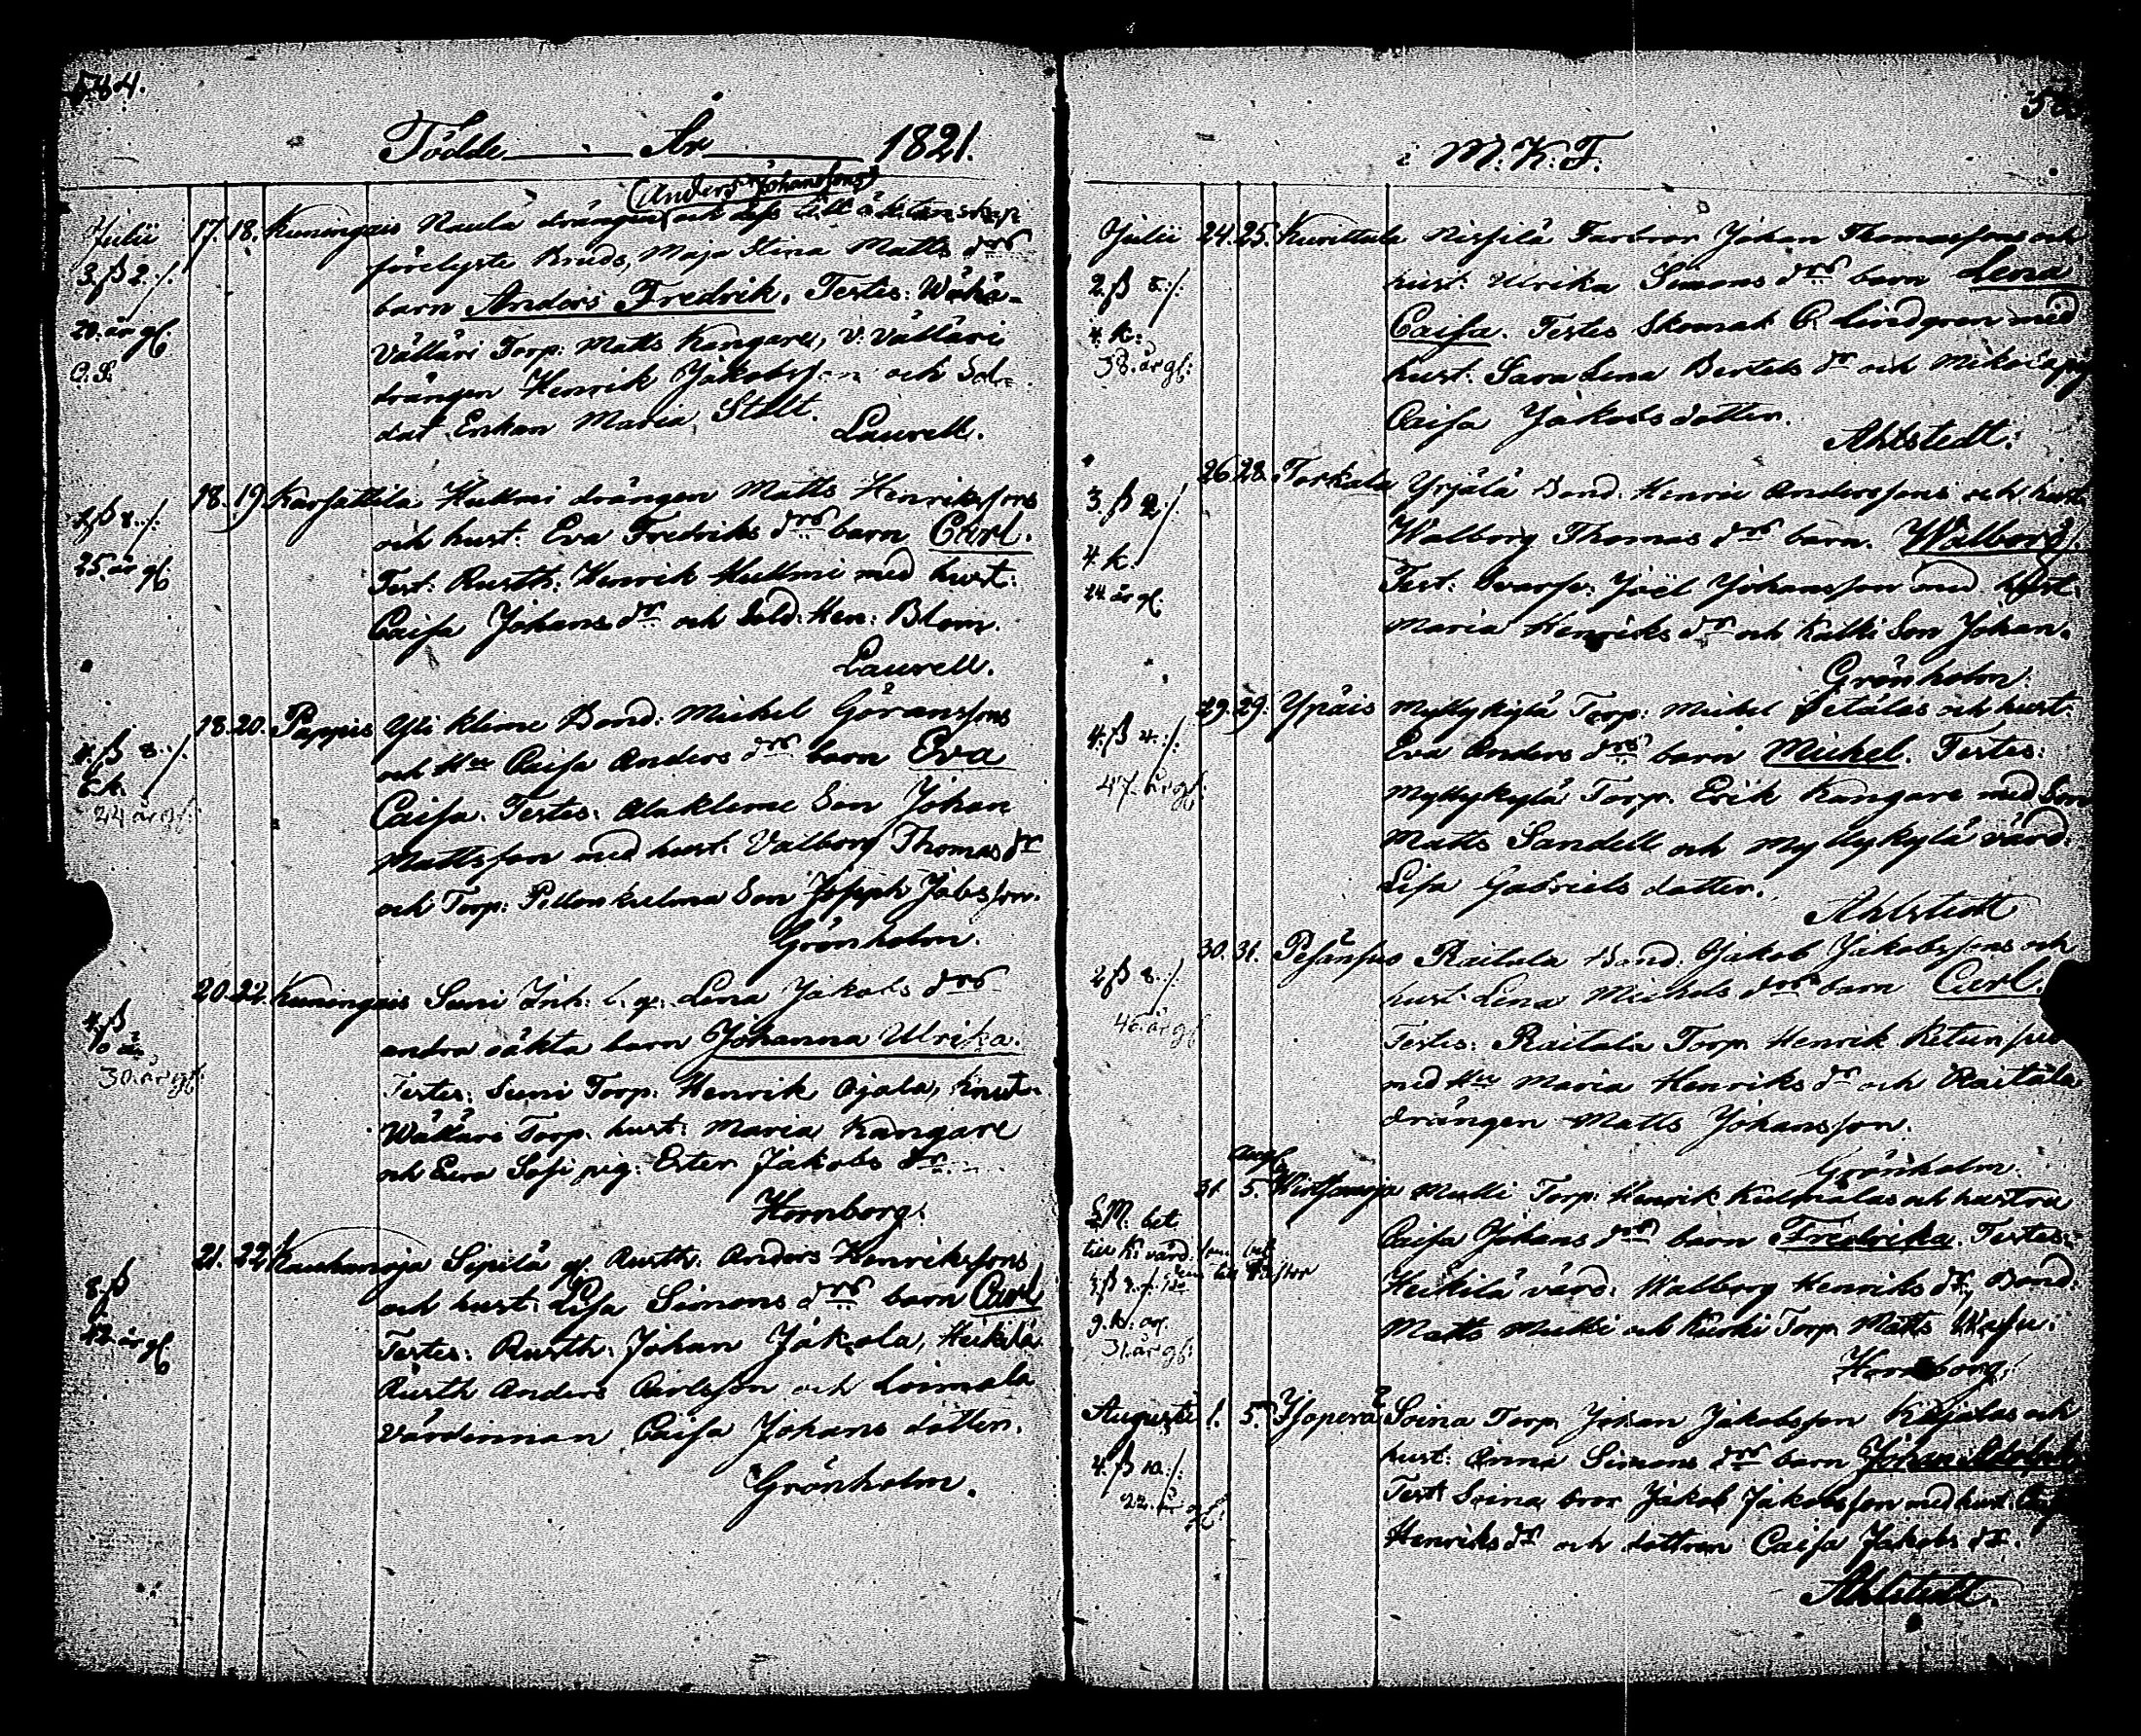 584.
Födde År 1821.
(Anders Johanssons)
Julii 17. 18. Kuningais Naula drängen och dess till äktenskap
3 ß 2 ./. förelyste Bruds, Maja Stina Matts drs
20. år gl. barn Anders Fredrik. Testes: Wähä-
Välläri Torp: Matts Kangare, v. Välläri
drängen Henrik Jakobsson och Sol-
dat Enkan Maria Stolt.
Laurell.
18. 19 Karsattila Hukmi drängen Matts Henrikssons
8 ./. och hust: Eva Fredriks drs barn Carl.
25. år gl. Test: Rusth: Henrik Hukmi med hust:
Caisa Johans dr och Sold: Hen: Blom.
Laurell.
18. 20. Pappis Yli kleme Bond: Michel Göranssons
4. ß 8 ./. och Hu Caisa Anders drs barn Eva
24 år gl. Caisa. Testes: Alakleme Son Johan
Mattsson med hust. Valborg Thomas dr
och Torp: Son Joseph
Grönholm.
20. 22. Kuningais Suni Inh: l. q: Lena Jakobs drs
4. ß andra oäkta barn Johanna Ulrika.
30. år gl. Testes: Suni Torp: Henrik Ojala,
Wällari Torp. hust: Maria Kangare
och pig: Ester Jakobs dr.
Hornborg.
21. 22 Kauhanoja Sipilä gl. Rusth: Anders Henrikssons
8. ß och hust: Lisa Simons drs barn Carl
42. år gl. Testes: Rusth: Johan Jakola, Heikilä
Rusth Anders Carlsson och Loimala
Värdinnan Caisa Johans dotter.
Grönholm.
i M. K. F.
Julii 24. 25. Kurittula Nissilä Farbror Johan Thomassons och
2 ß 8 ./. hust: Ulrika Simons drs barn Lena
4. k. Caisa. Testes Skomak C. Lindgren med
38. år gl. hust: Sara Lena Bertels dr och
Caisa Jakobsdotter.
Ahlstedt.
26. 28. Torkala Yrjälä Bond: Henric Anderssons och hust
3 ß 2 ./. Walborg Thomas drs barn. Walborg.
4 k. Test: Joel Johansson med hust.
24 år gl. Maria Henriks dr och Kalli Son Johan.
Grönholm.
29. 29. Ypäis Myllykylä Torp: Michel och hust.
4. ß 4 ./. Eva Anders drs barn Michel. Testes:
47. år gl. Myllykylä Torp. Erik Kangare med Son
Matts Sandell och Myllykylä värd.
Lisa Gabriels dotter.
Ahlstedt
30. 31. Pesänsuo Raitala Bond. Jakob Jakobssons och
2 ß 8 ./. hust: Lena Michels drs barn Carl.
40. år gl. Testes: Raitala Torp. Henrik
med Hu Maria Henriks dr och Raitala
drängen Matts Johansson.
Grönholm.
Aug.
31. 5. Wirtsanoja Mulli Torp: Henrik och hustru
Caisa Johans drs barn Fredrika. Testes:
Heikilä värd: Walborg Henriks dr, Bond.
31. år gl. Matts Mulli och Torp. Matts
Hornborg.
Augusti 1. 5. Isoperä Soina Torp. Johan Jakobsson och
4. ß 10 ./. hust: Anna Simons drs barn Johan Adolph
22. år gl. Test: Soina bror Jakob Jakobsson med hust.
Henriks dr och dottren Caisa Jakobs dr.
Ahlstedt.